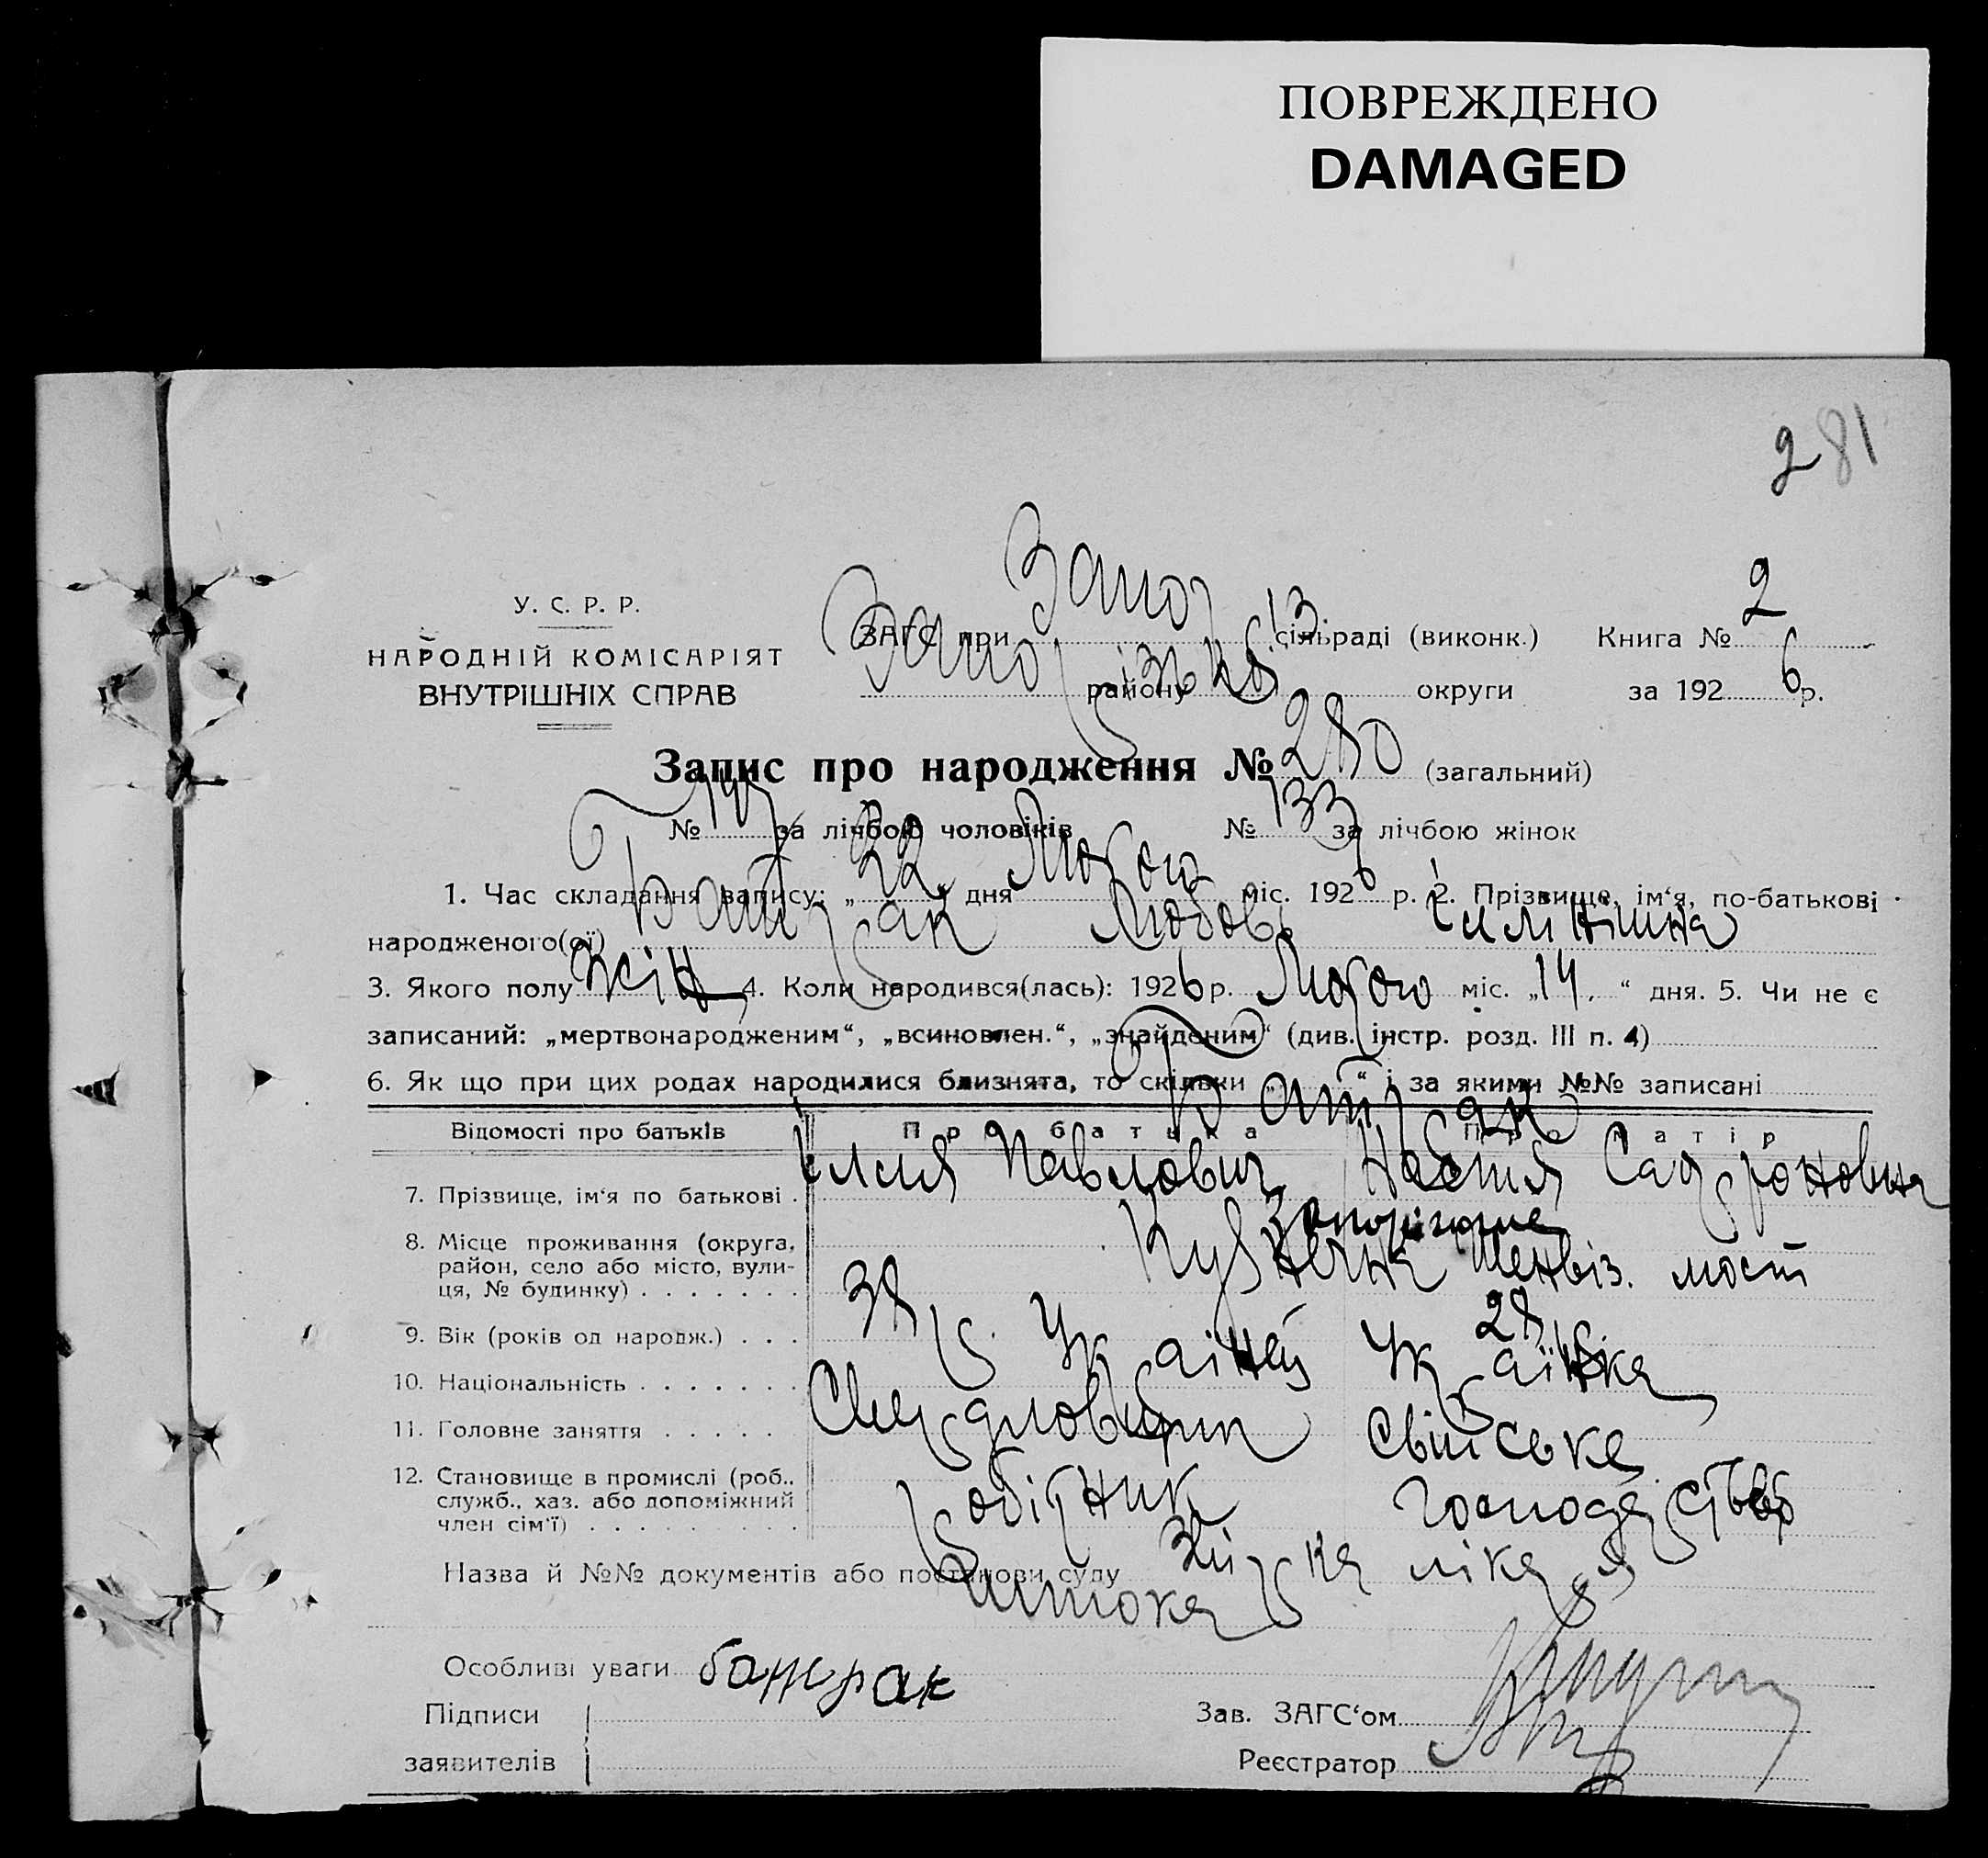 ПОВРЕЖДЕНО
DAMAGED
281
У. С. Р. Р.
НАРОДНІЙ КОМІСАРІЯТ
ВНУТРІШНІХ СПРАВ
ЗАГС при Запор сільраді (виконк.) Книга № 2
району Запорізької округи за 1926 р.
Запис про народження № 280 (загальний)
№ 147 за лічбою чоловіків № 133 за лічбою жінок
1. Час складання запису: „22“ дня Лютого міс. 1926 р. 2. Прізвище, ім‘я, по-батькові
народженого(ої) Батрак Любов Іллінішна
3. Якого полу жін 4. Коли народився(лась): 1926 р. Лютого міс. „14“ дня. 5. Чи не є
записаний: „мертвонародженим“, „всиновлен.“, „знайденим“ (див. інстр. розд. III п. 4)
6. Як що при цих родах народилися близнята, то скільки „ “ і за якими №№ записані
Відомості про батьків Про батька Про матір
Батрак
7. Прізвище, ім‘я по батькові Ілля Павлович Настя Сафроновна
Запоріжжє
8. Місце проживання (округа, район, село або місто, вулиця, № будинку) Кузнечна мост
9. Вік (років од народж.) 38 р. 28
10. Національність Українец Українка
11. Головне заняття Свійське
12. Становище в промислі (роб., служб., хаз. або допоміжний член сім‘ї) робітник господарство
Назва й №№ документів або постанови суду лікаря
Особливі уваги батрак
Підписи
заявителів
Зав. ЗАГС‘ом
Реєстратор